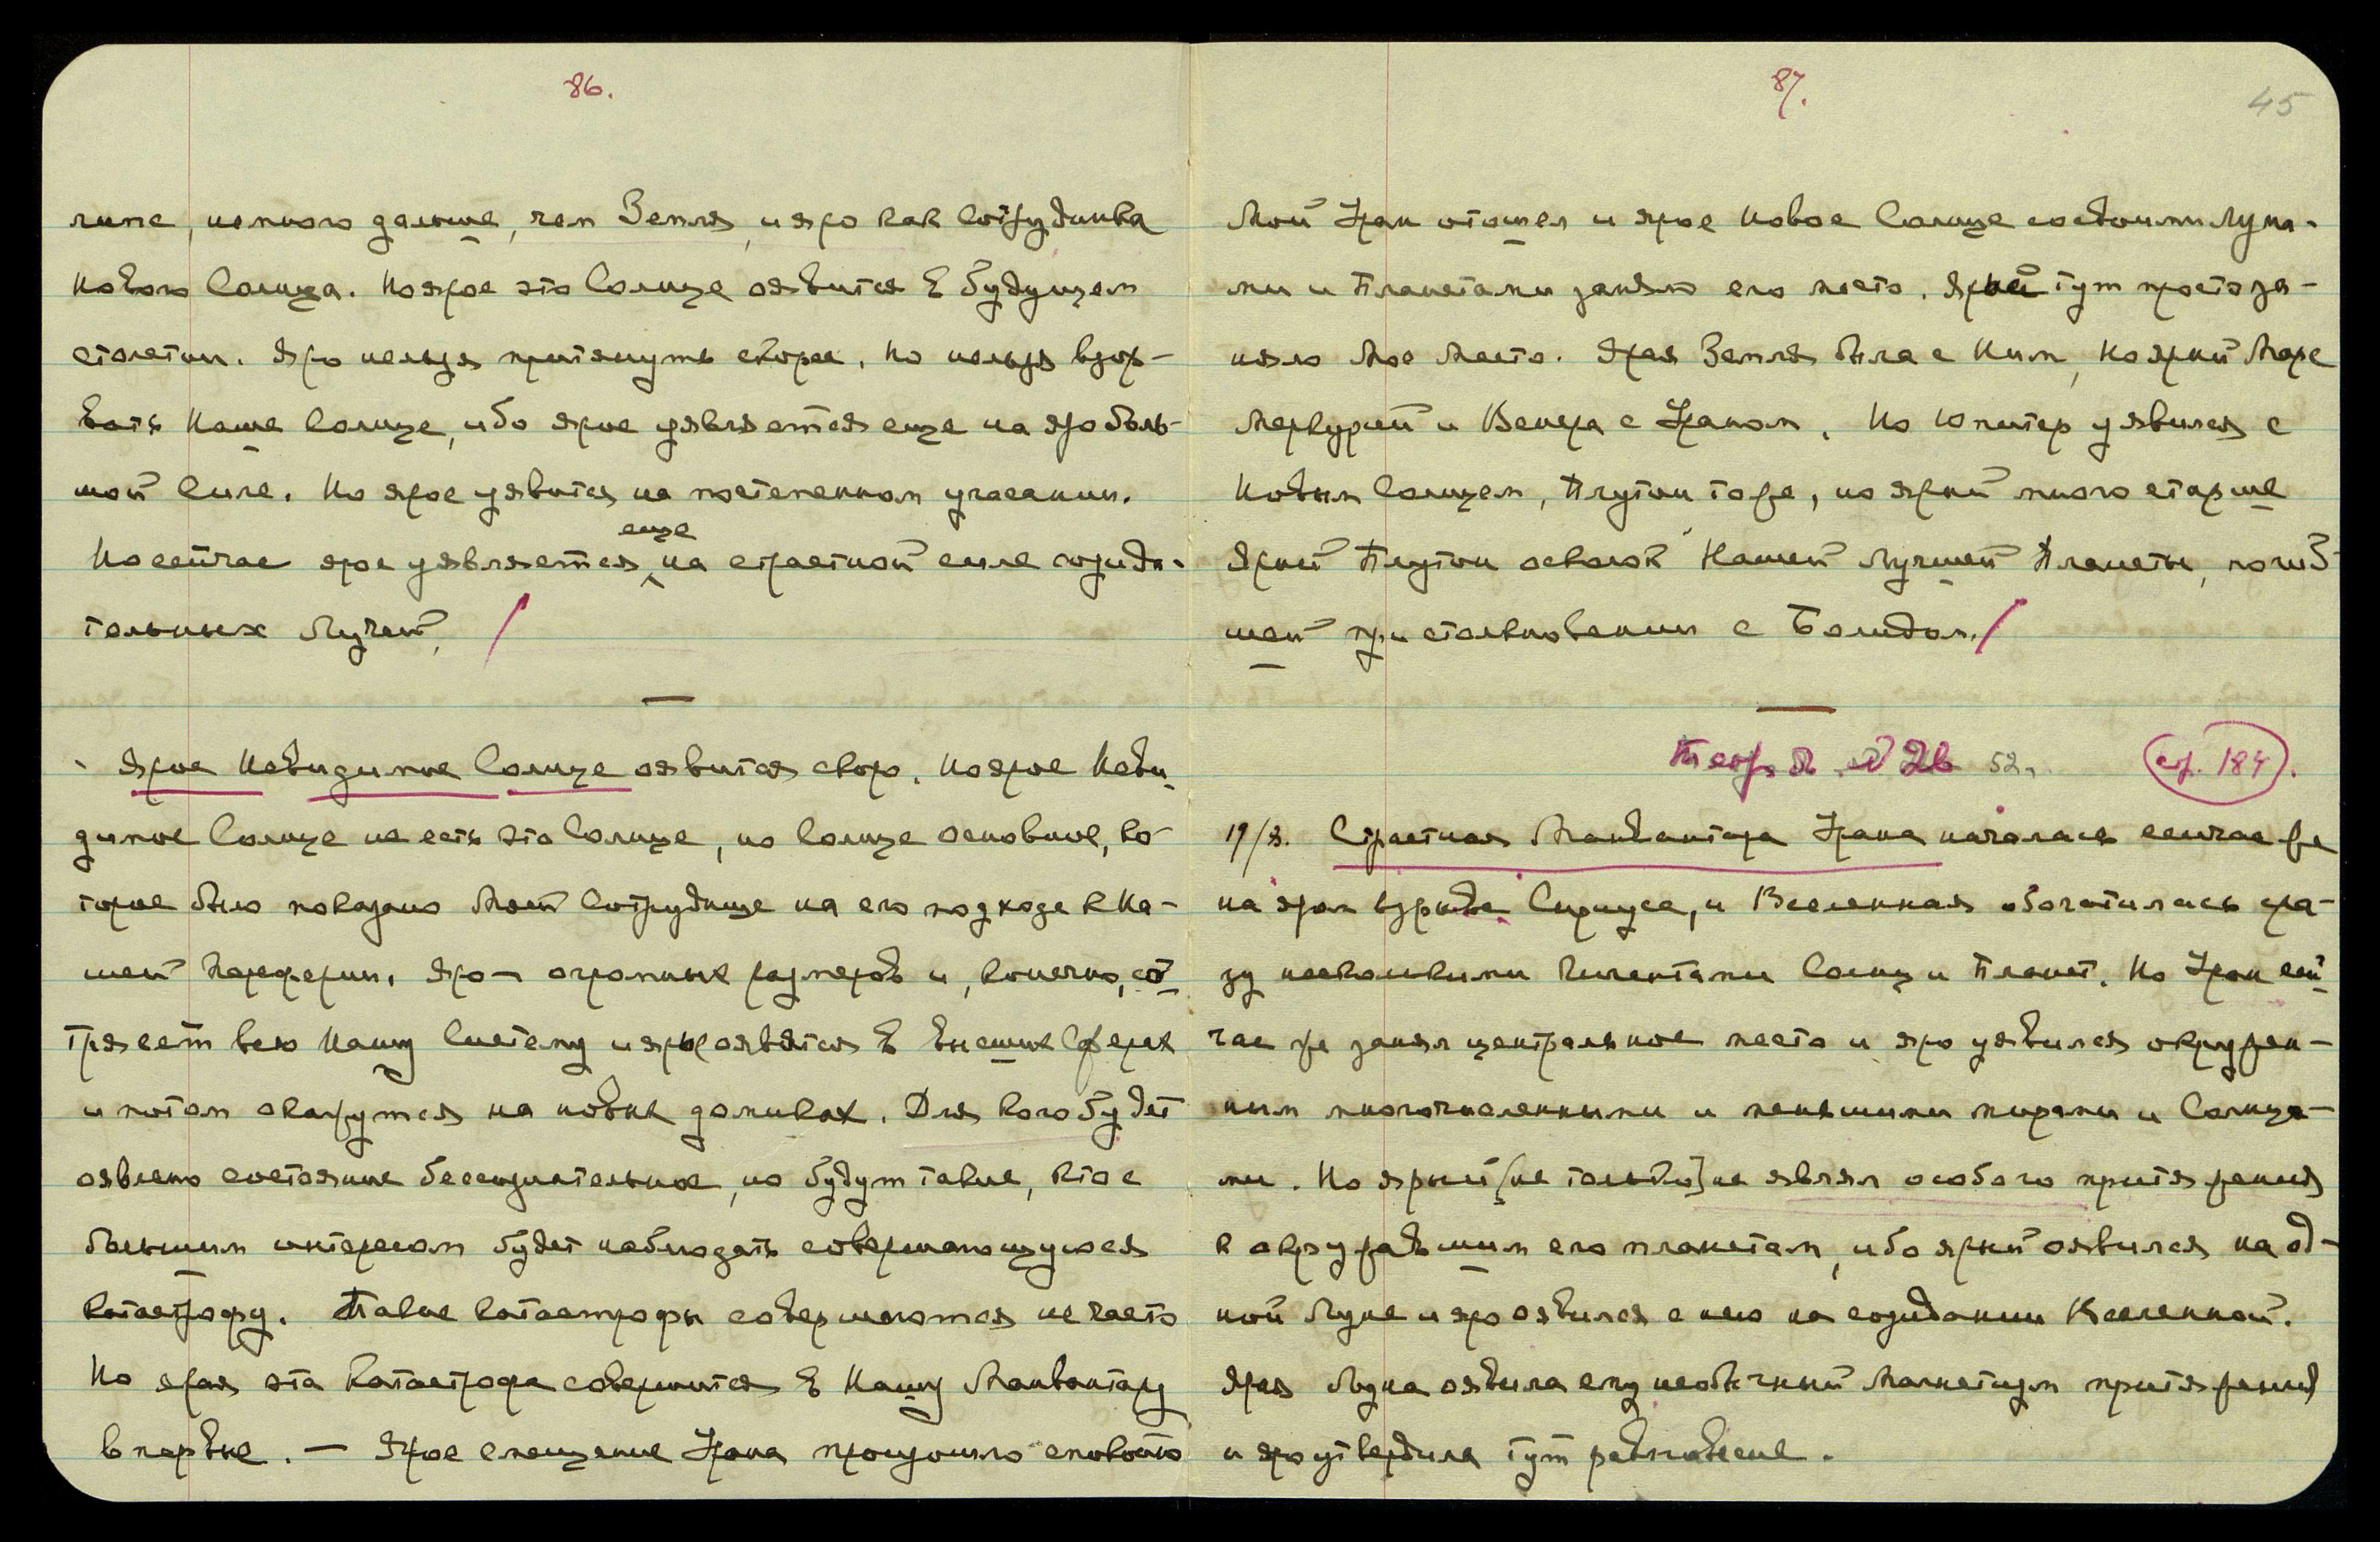 86.
лите, немного дальше, чем Земля, и яро как Сотрудника
Нового Солнца. Но ярое это Солнце оявится в будущем
столетии. Яро нельзя притянуть скорее, но нельзя взор-
вать Наше Солнце, ибо ярое уявляется еще на яро боль-
шой Силе. Но ярое уявится на постепенном угасании.
Но сейчас ярое уявляется еще на страстной силе созида-
тельных Лучей.
Ярое Невидимое Солнце оявится скоро. Но ярое Неви-
димое Солнце не есть это Солнце, но Солнце основное, ко-
торое было показано Моей Сотруднице на его подходе к На-
шей Переферии. Яро – огромных размеров и, конечно, со-
трясет всю Нашу Систему и ярые оявятся в Высших Сферах
и потом окажутся на новых домиках. Для кого будет
оявлено состояние бессознательное, но будут такие, кто с
большим интересом будет наблюдать совершающуюся
катастрофу. Такие катастрофы совершаются не часто
Но ярая эта Катастрофа совершится в Нашу Манвантару
впервые. — Ярое смещение Урана произошло сповойно
87.
45
Мой Уран отошел и ярое Новое Солнце со своими Луна-
ми и Планетами заняло его место. Ярый тут просто за-
няло Мое Место. Ярая Земля была с Ним, но ярый Марс
Меркурий и Венера с Ураном. Но Юпитер уявился с
Новым Солнцем, Плутон тоже, но ярый много старше
Ярый Плутон осколок Нашей Лучшей Планеты, погиб-
шей при столкновении с Болидом.
52.
стр. 184.
19/8. Страстная Манвантара Урана началась сейчас же
на яром взрыве Сириуса, и Вселенная обогатилась сра-
зу несколькими Гигантами Солнц и Планет. Но Уран сей-
час же занял центральное место и яро уявился окружен-
ным многочисленными и меньшими мирами и Солнца-
ми. Но ярый [не только] не являл особого притяжения
к окружавшим его планетам, ибо ярый оявился на од-
ной Луне и яро оявился с нею на созидании Вселенной.
Ярая Луна оявила ему необычный Магнетизм притяжения
и яро утвердила тут равновесие.